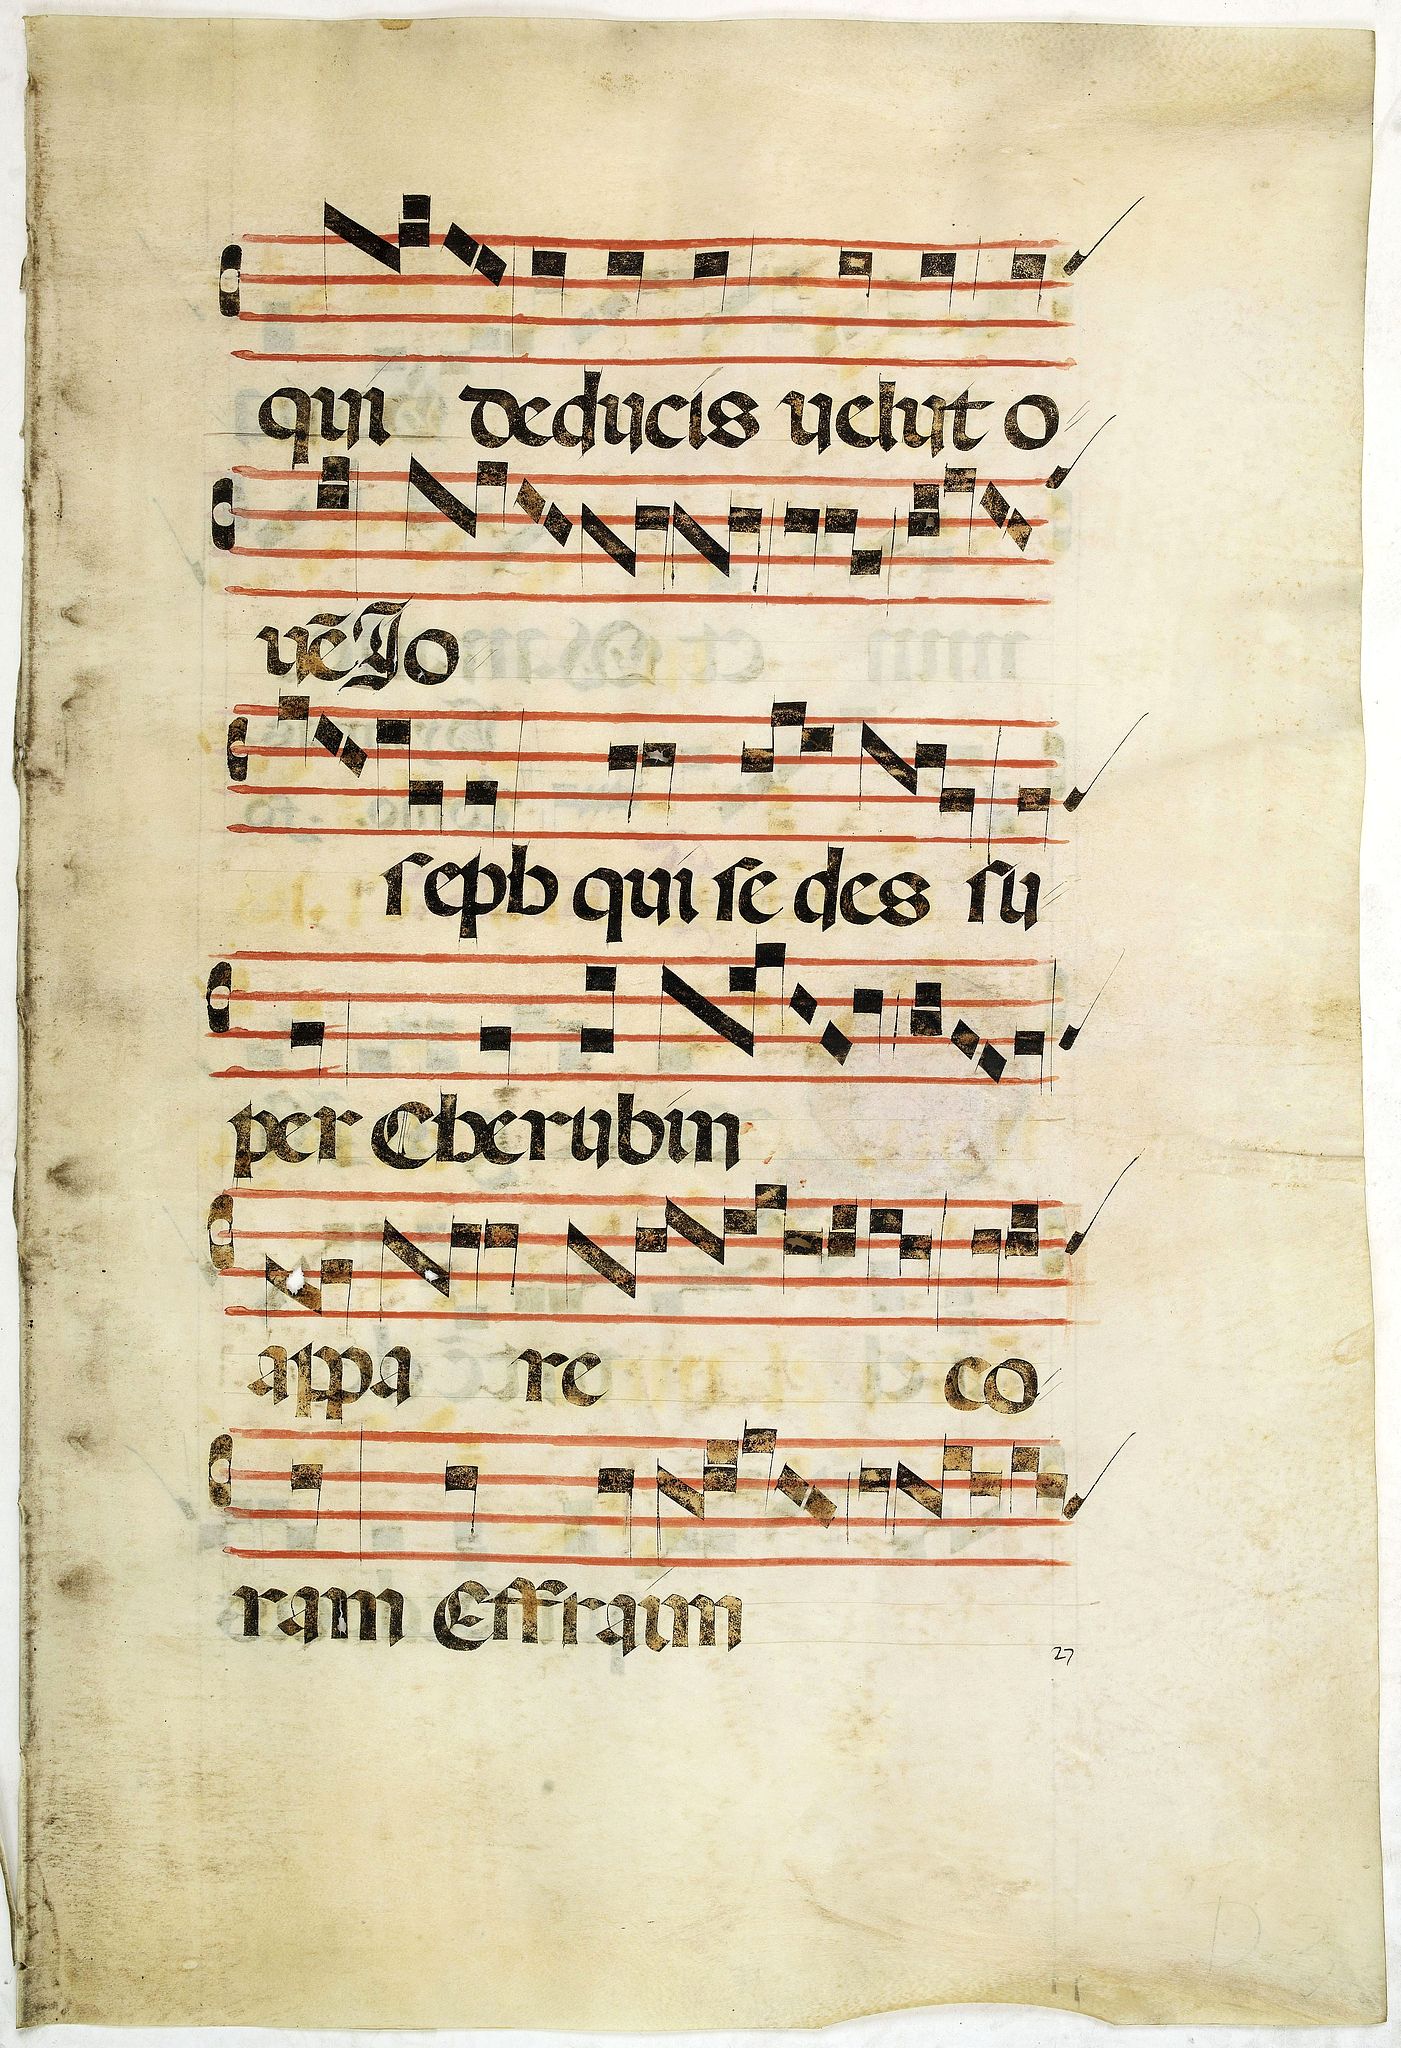 qui deducis uelut o
uē Jo
seph qui se des su
per Cherubin
appa re co
ram Effraim
27